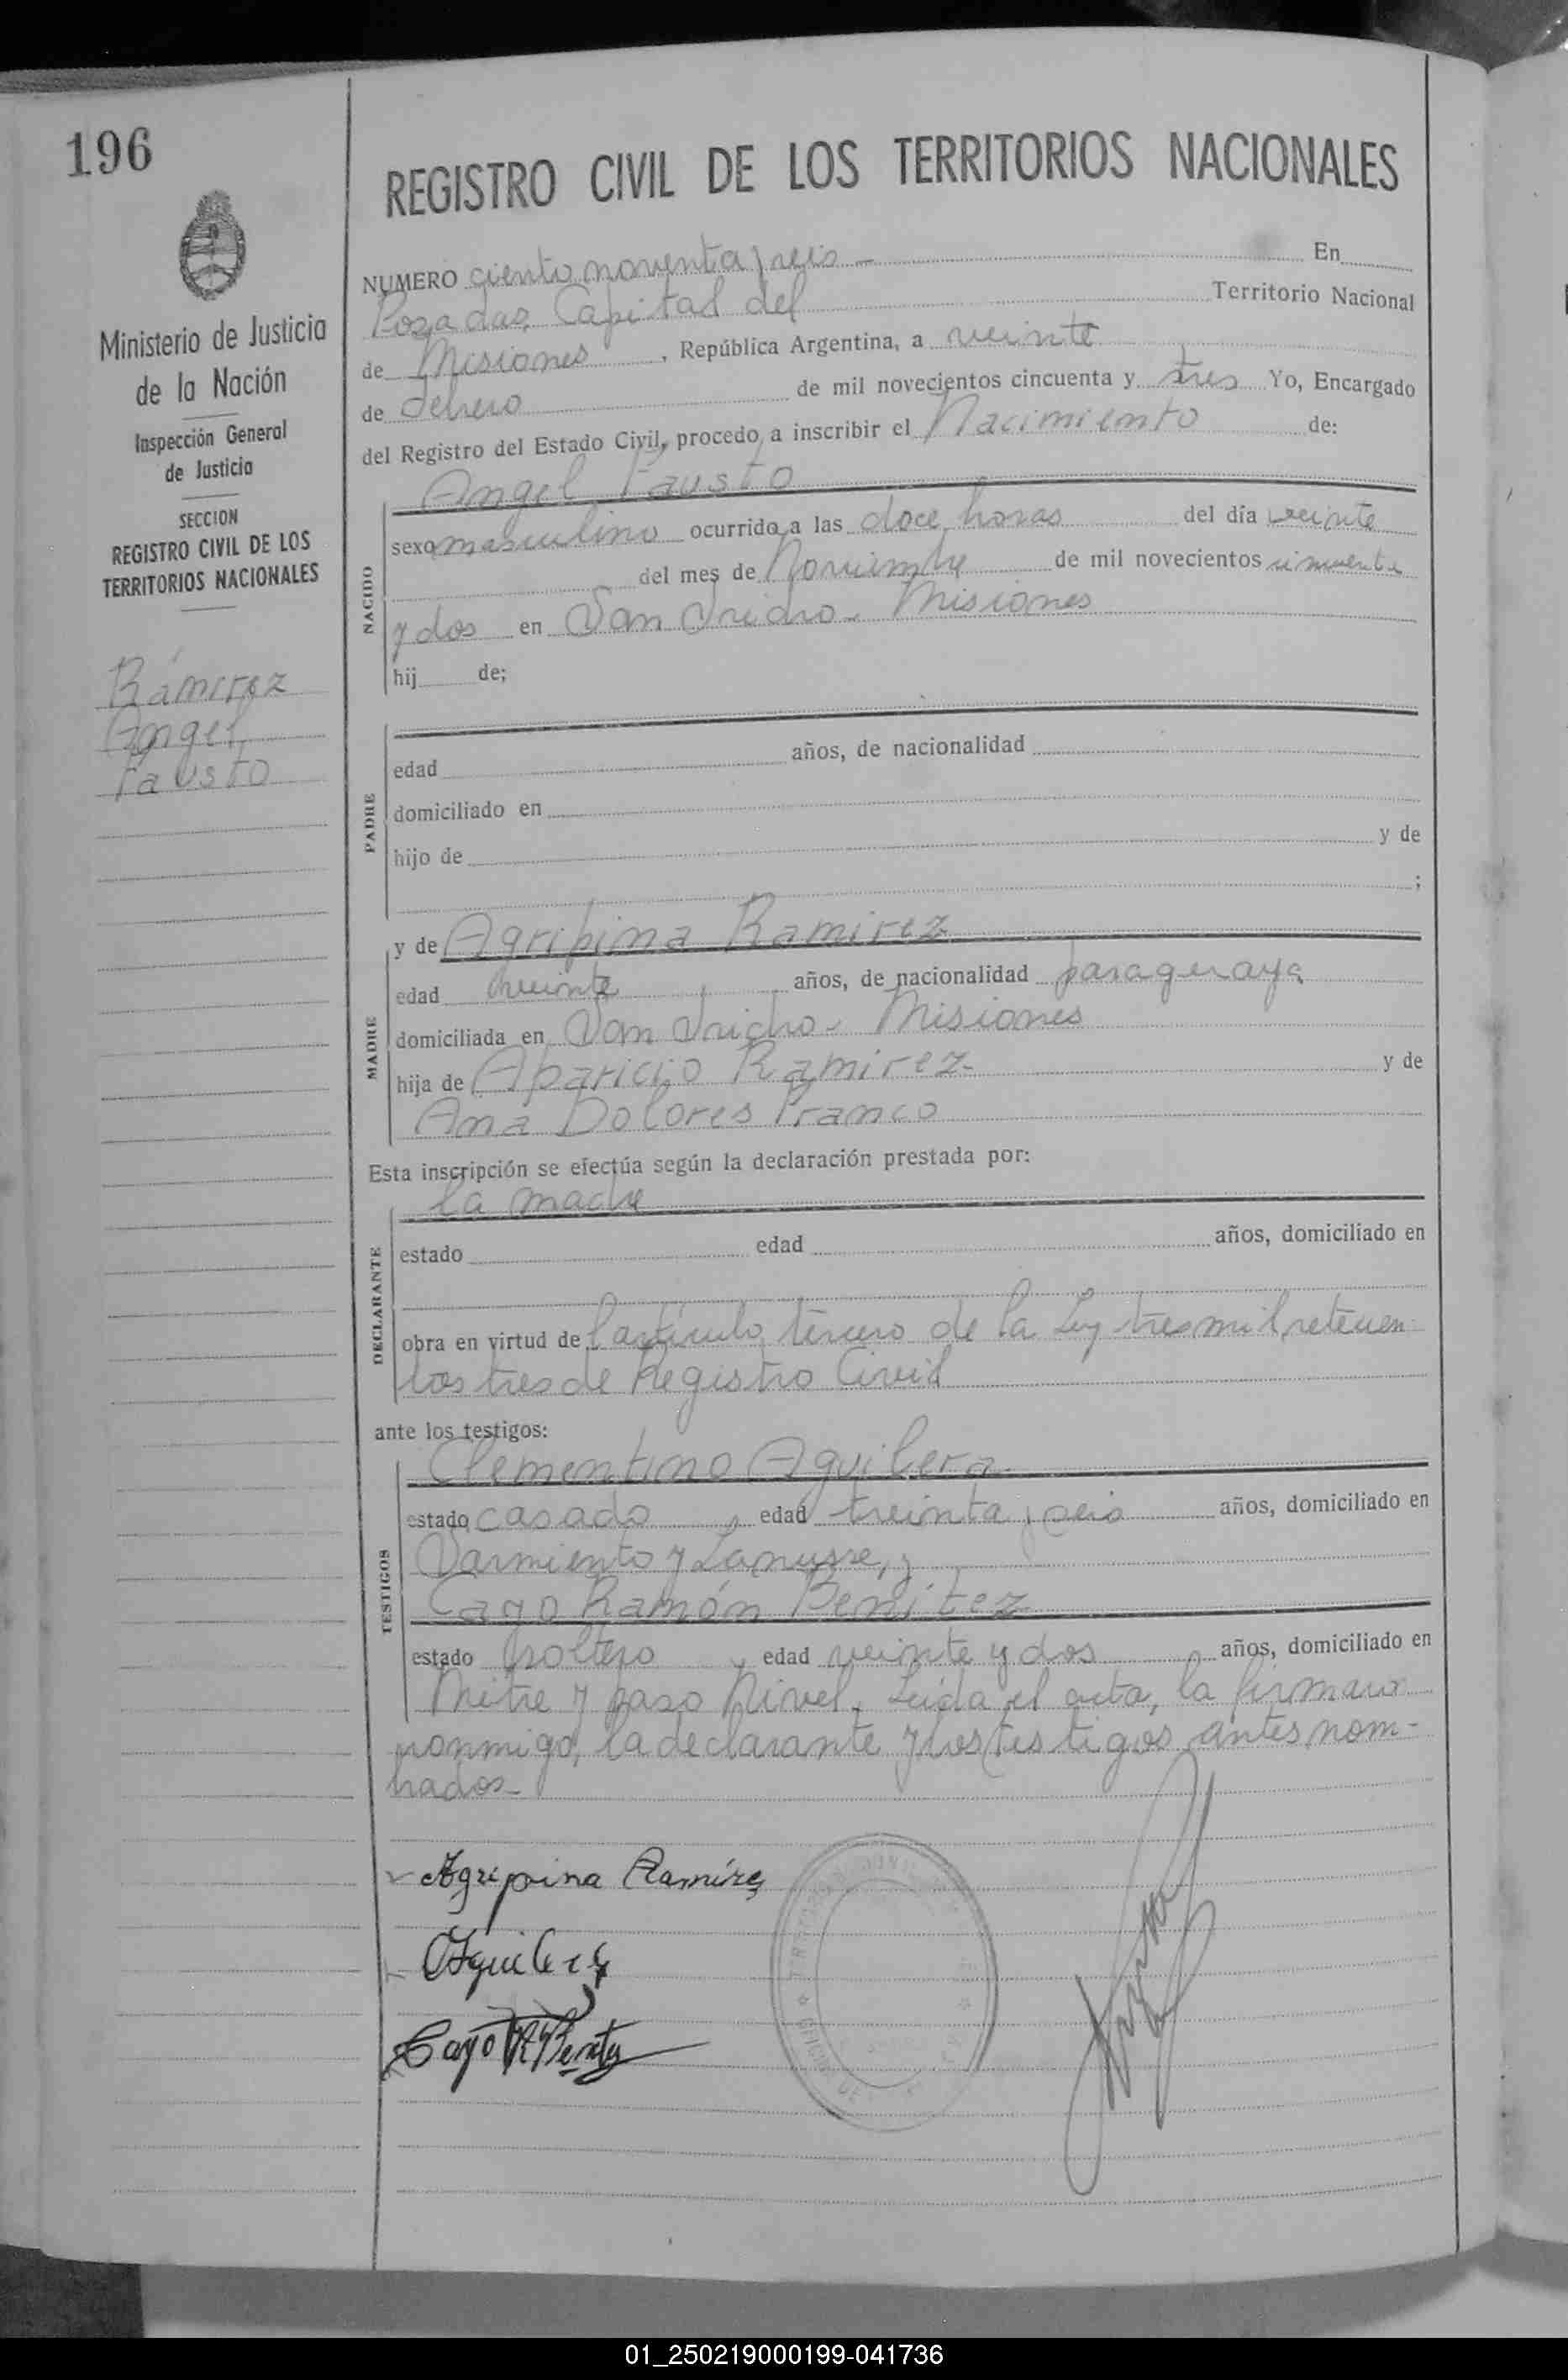 196
Ministerio de Justicia
de la Nación
Inspección General
de Justicia
SECCION
REGISTRO CIVIL DE LOS
TERRITORIOS NACIONALES
Rámirez
Angel
Fausto
REGISTRO CIVIL DE LOS TERRITORIOS NACIONALES
NUMERO ciento noventa y seis - En
Posadas, Capital del Territorio Nacional
de Misiones, República Argentina, a veinte
de febrero de mil novecientos cincuenta y tres Yo, Encargado
del Registro del Estado Civil, procedo a inscribir el Nacimiento de:
NACIDO
Angel Fausto
sexo masculino ocurrido a las doce horas del día veinte
del mes de Noviembre de mil novecientos cincuenta
y dos en San Isidro - Misiones
hij de;
PADRE
edad años, de nacionalidad
domiciliado en
hijo de y de
;
MADRE
y de Agripina Ramirez
edad veinte años, de nacionalidad paraguaya
domiciliada en San Isidro - Misiones
hija de Aparicio Ramirez y de
Ana Dolores Franco
Esta inscripción se efectúa según la declaración prestada por:
DECLARANTE
la madre
estado edad años, domiciliado en
obra en virtud del artículo tercero de la Ley tres mil setecien
tos tres de Registro Civil
ante los testigos:
TESTIGOS
Clementino Aguilera
estado casado, edad treinta y seis años, domiciliado en
Sarmiento y Lanusse, y
Cayo Ramón Benítez
estado soltero, edad veinte y dos años, domiciliado en
Mitre y paso Nivel. Leida el acta, la firmaron
conmigo, la declarante y los testigos antes nom-
brados-
Agripina Ramírez
Aguilera
Cayo R Benitez
01_250219000199-041736